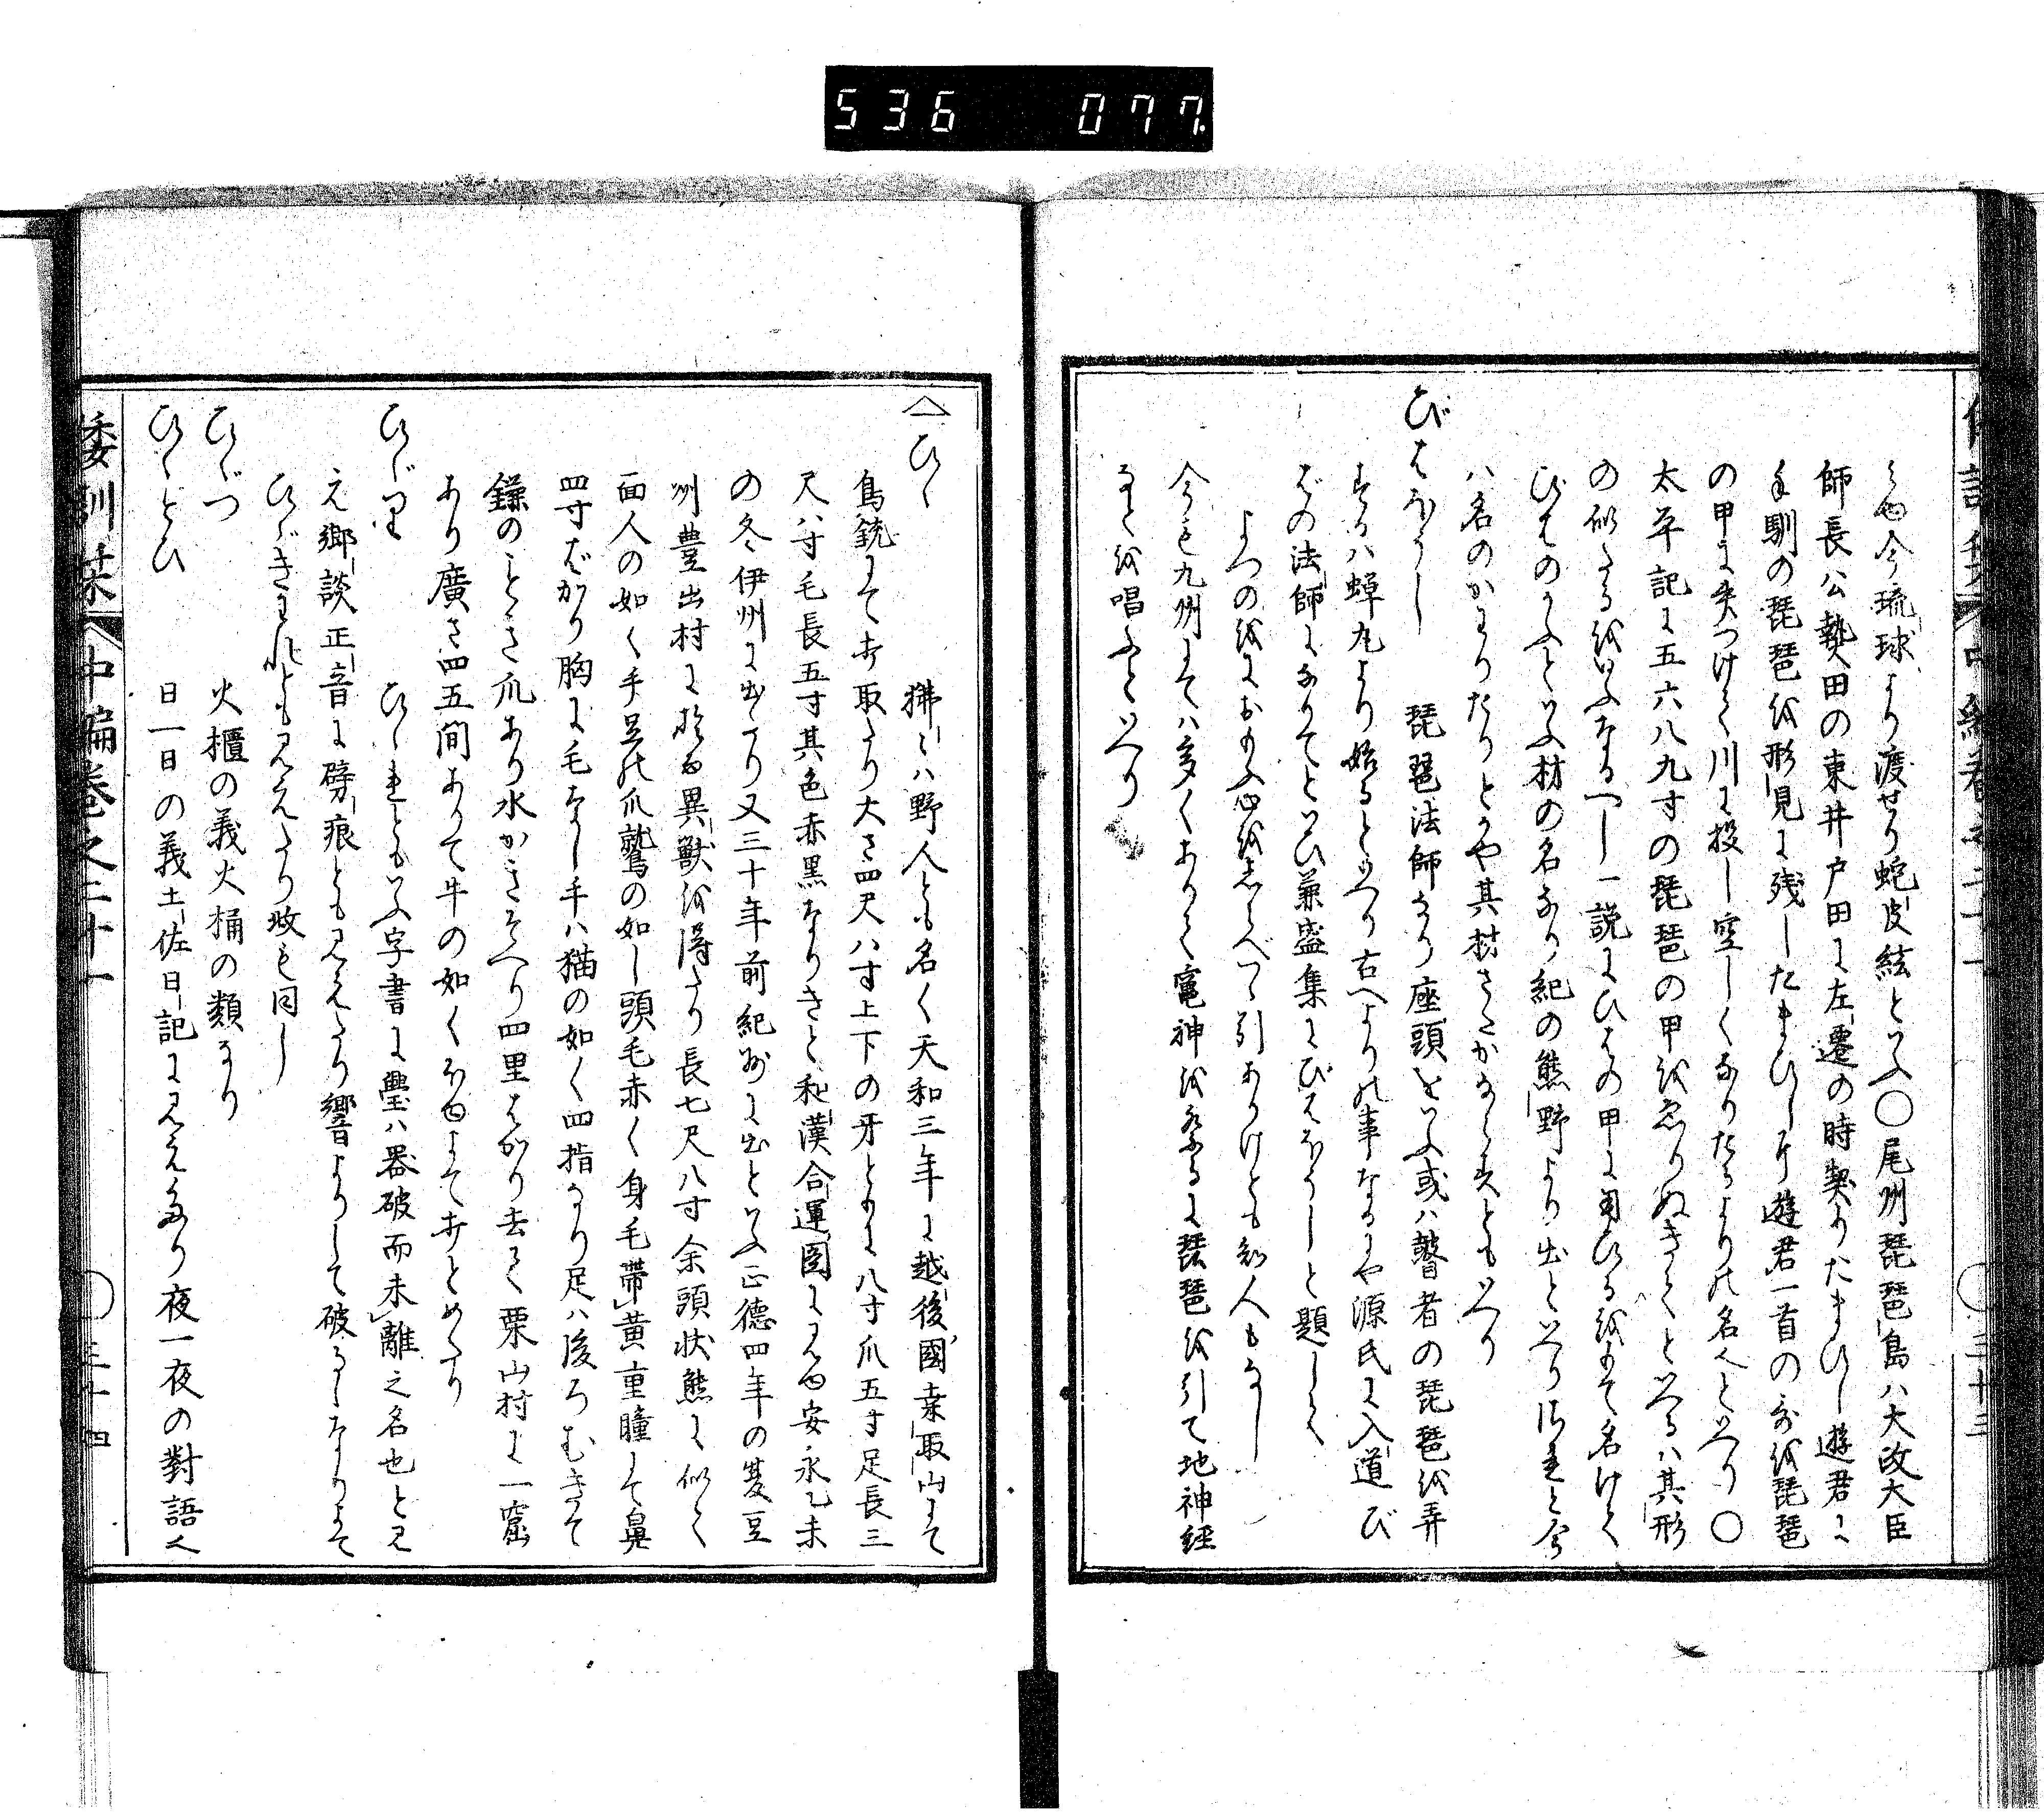 536 077.
らる今琉球より渡せり蛇皮絃といふ○尾州琵琶島ハ大政大臣
師長公熱田の東井戸田に左遷の時契りたまひし遊君に
手馴の琵琶を形見に残したまひしに遊君一首の哥を琵琶
の甲に美つけて川に投し空しくなりたるよりの名也といへり○
太平記に五六八九寸の琵琶の甲を忽りぬきてといへるハ其形
の似たるをいふなるへし一説にひはの甲に用ひるをもて名けて
びはのかふといふ材の名なり紀の熊野より出といへりされと今
ハ名のかはりたりとかや其材さたかならすともいへり
びはほうし 琵琶法師なり座頭をいふ或ハ瞽者の琵琶を弄
するハ蝉丸より始るといへり古へよりの事なるにや源氏に入道び
はの法師になりてといひ兼盛集にびはほうしと題して
よつの緒におもふ心をしらべつゝ引ありけとも知人もなし
今も九州にてハ多くありて竈神を祭るに琵琶を引て地神経
なとを唱ふといへり
ひゝ 狒々ハ野人とも名く天和三年に越後國桒取山にて
鳥銃にて打取たり大さ四尺八寸上下の牙ともに八寸爪五寸足長三
尺八寸毛長五寸其色赤黒なりきと和漢合運圖に見ゆ安永乙未
の冬伊州に出たり又三十年前紀州に出といふ正徳四年の夏豆
州豊出村に於る異獣を得たり長七尺八寸余頭状熊に似て
面人の如く手足の爪鷲の如し頭毛赤く身毛帯黄重瞳にて鼻
四寸ばかり胸に毛なし手ハ猫の如く四指なり足ハ後ろむきて
鎌のことき爪あり水かきそへり四里はかり去て栗山村に一窟
あり廣さ四五間ありて牛の如くほゆよて打とめたり
ひゞれ ひゝれともいふ字書に璺ハ器破而未離之名也と見
え郷談正音に劈痕とも見えたり響よりして破るゝなりよて
ひゞきわれとも見えたり皹も同し
ひゞつ 火櫃の義火桶の類なり
ひゝとひ 日一日の義土佐日記に見えたり夜一夜の對語也
倭訓栞 中編巻之二十一 三十四